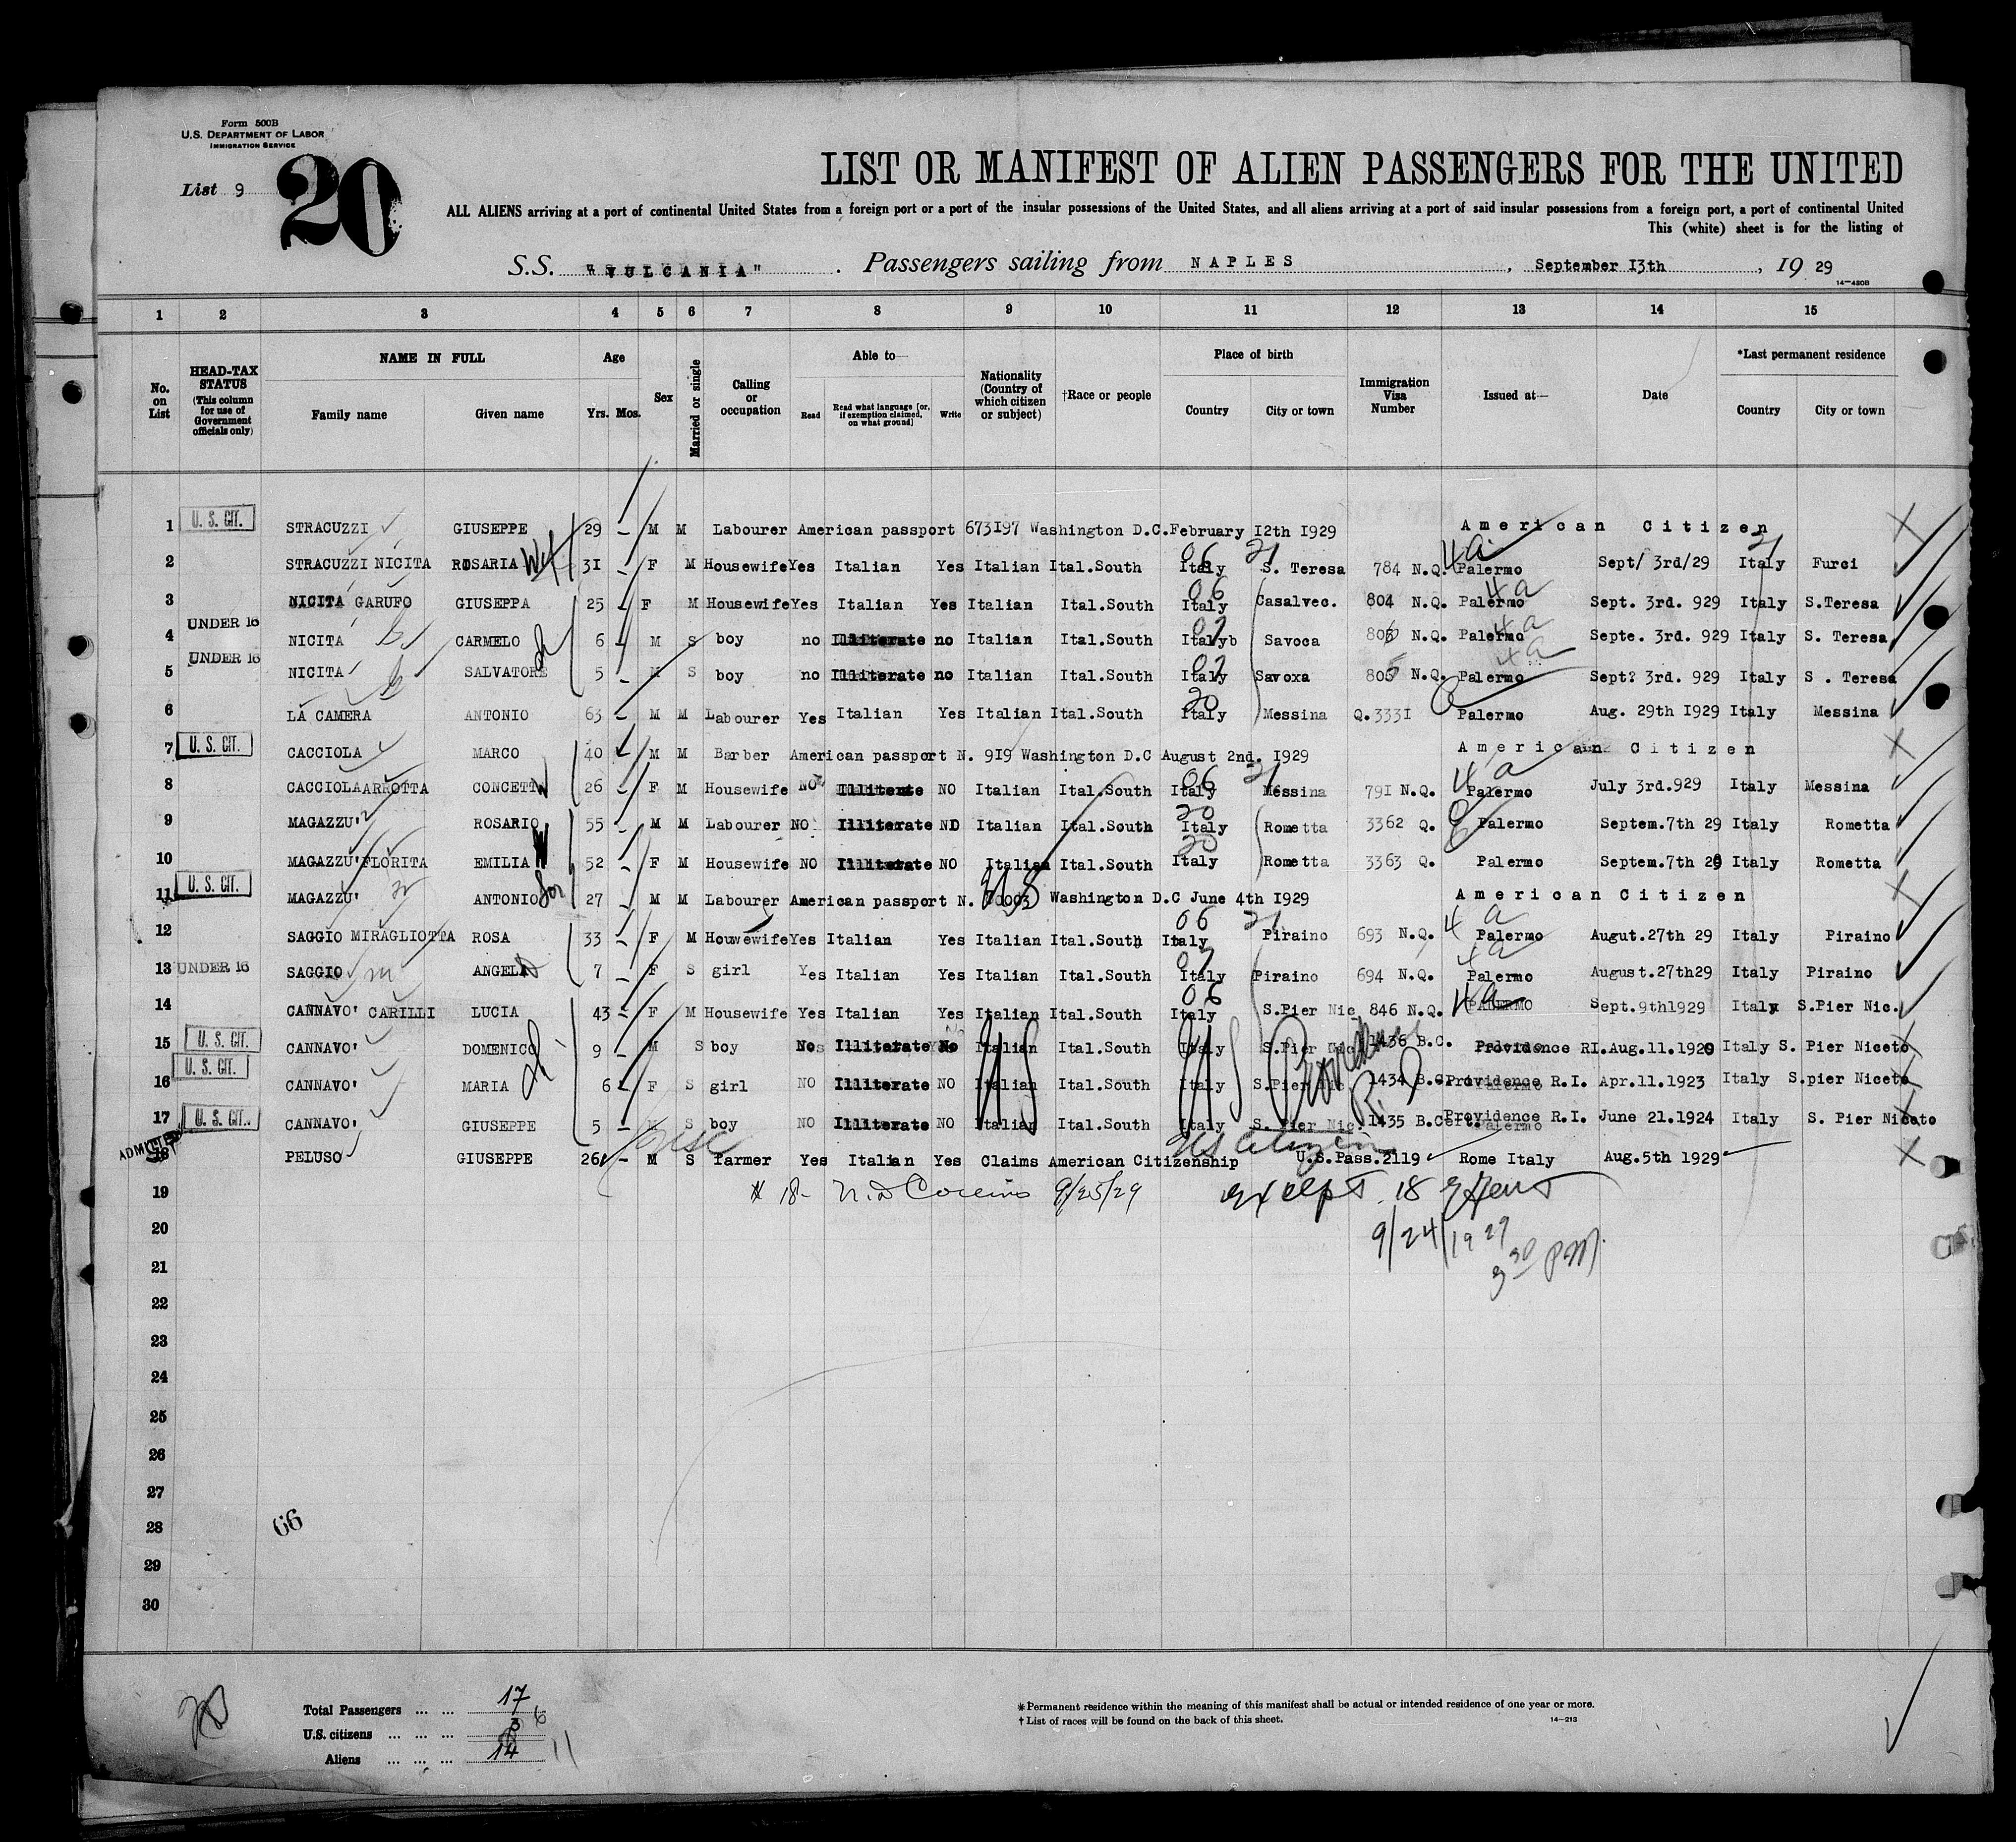 Form 500B
U.S. DEPARTMENT OF LABOR
IMMIGRATION SERVICE
List 9
20
LIST OR MANIFEST OF ALIEN PASSENGERS FOR THE UNITED
ALL ALIENS arriving at a port of continental United States from a foreign port or a port of the insular possessions of the United States, and all aliens arriving at a port of said insular possessions from a foreign port, a port of continental United
This (white) sheet is for the listing of
S.S. "VULCANIA". Passengers sailing from NAPLES, September 13th, 19 29
14—430B
1 2 3 4 5 6 7 8 9 10 11 12 13 14 15
No. on List
HEAD-TAX STATUS (This column for use of Government officials only)
NAME IN FULL
Family name Given name
Age
Yrs. Mos.
Sex
Married or single
Calling or occupation
Able to—
Read Read what language [or, if exemption claimed, on what ground] Write
Nationality (Country of which citizen or subject)
†Race or people
Place of birth
Country City or town
Immigration Visa Number
Issued at—
Date
*Last permanent residence
Country City or town
1 U. S. CIT. STRACUZZI GIUSEPPE 29 - M M Labourer American passport 673197 Washington D.C.February 12th 1929 American Citizen
2 STRACUZZI NICITA ROSARIA 31 - F M Housewife Yes Italian Yes Italian Ital.South Italy S. Teresa 784 N.Q. Palermo Sept/ 3rd/29 Italy Furci
3 NICITA GARUFO GIUSEPPA 25 - F M Housewife Yes Italian Yes Italian Ital.South Italy Casalvec. 804 N.Q. Palermo Sept. 3rd. 929 Italy S.Teresa
4 UNDER 16 NICITA CARMELO 6 - M S boy no Illiterate no Italian Ital.South Italyb Savoca N.Q. Palermo Septe. 3rd. 929 Italy S. Teresa
5 UNDER 16 NICITA SALVATORE 5 - M S boy no Illiterate no Italian Ital.South Italy Savoxa 805 N.Q. Palermo Sept? 3rd. 929 Italy S . Teresa
6 LA CAMERA ANTONIO 63 - M M Labourer Yes Italian Yes Italian Ital.South Italy Messina Q.3331 Palermo Aug. 29th 1929 Italy Messina
7 U. S. CIT. CACCIOLA MARCO 40 M M Barber American passport N. 919 Washington D.C August 2nd. 1929 American Citizen
8 CACCIOLA ARROTTA CONCETTA 26 - F M Housewife NO Illiterate NO Italian Ital.South Italy Messina 791 N.Q. Palermo July 3rd.929 Italy Messina
9 MAGAZZU' ROSARIO 55 - M M Labourer NO Illiterate NO Italian Ital.South Italy Rometta 3362 Q. Palermo Septem.7th 29 Italy Rometta
10 MAGAZZU'FLORITA EMILIA 52 - F M Housewife NO Illiterate NO Italian Ital.South Italy Rometta 3363 Q. Palermo Septem.7th 29 Italy Rometta
11 U. S. CIT. MAGAZZU' ANTONIO Son 27 - M M Labourer American passport N. Washington D.C June 4th 1929 American Citizen
12 SAGGIO MIRAGLIOTTA ROSA 33 - F M Houwewife Yes Italian Yes Italian Ital.South Italy Piraino 693 N.Q. Palermo Augut.27th 29 Italy Piraino
13 UNDER 16 SAGGIO ANGELA 7 - F S girl Yes Italian Yes Italian Ital.South Italy Piraino 694 N.Q. Palermo August.27th29 Italy Piraino
14 CANNAVO' CARILLI LUCIA 43 - F M Housewife Yes Italian Yes Italian Ital.South Italy S.Pier Nic. 846 N.Q. PALERMO Sept.9th1929 Italy S.Pier Nic.
15 U. S. CIT. CANNAVO' DOMENICO 9 - M S boy No Illiterate No Italian Ital.South Italy S.Pier Nic. 1436 B.C. Providence RI. Aug.11.1920 Italy S. Pier Niceto
16 U. S. CIT. CANNAVO' MARIA 6 - F S girl NO Illiterate NO Italian Ital.South Italy S.Pier Nic 1434 B.C. Providence R.I. Apr.11.1923 Italy S.pier Niceto
17 U. S. CIT. CANNAVO' GIUSEPPE 5 - M S boy NO Illiterate NO Italian Ital.South Italy S. Pier Nic. 1435 B.Cert. Providence R.I. June 21.1924 Italy S. Pier Niceto
US US Providence R.I.
ADMITTED
18 PELUSO GIUSEPPE 26 - M S farmer Yes Italian Yes Claims American Citizenship U.S.Pass.2119 Rome Italy Aug.5th 1929
US Citizen
19 # 18- 9/25/29 except 18
20 9/24/1929
21 3 30 PM.
22
23
24
25
26
27
28
29
30
66
Total Passengers ... ... 17
U.S. citizens ... ... ... 3 6
Aliens ... ... ... 14 11
*Permanent residence within the meaning of this manifest shall be actual or intended residence of one year or more.
†List of races will be found on the back of this sheet.
14—213